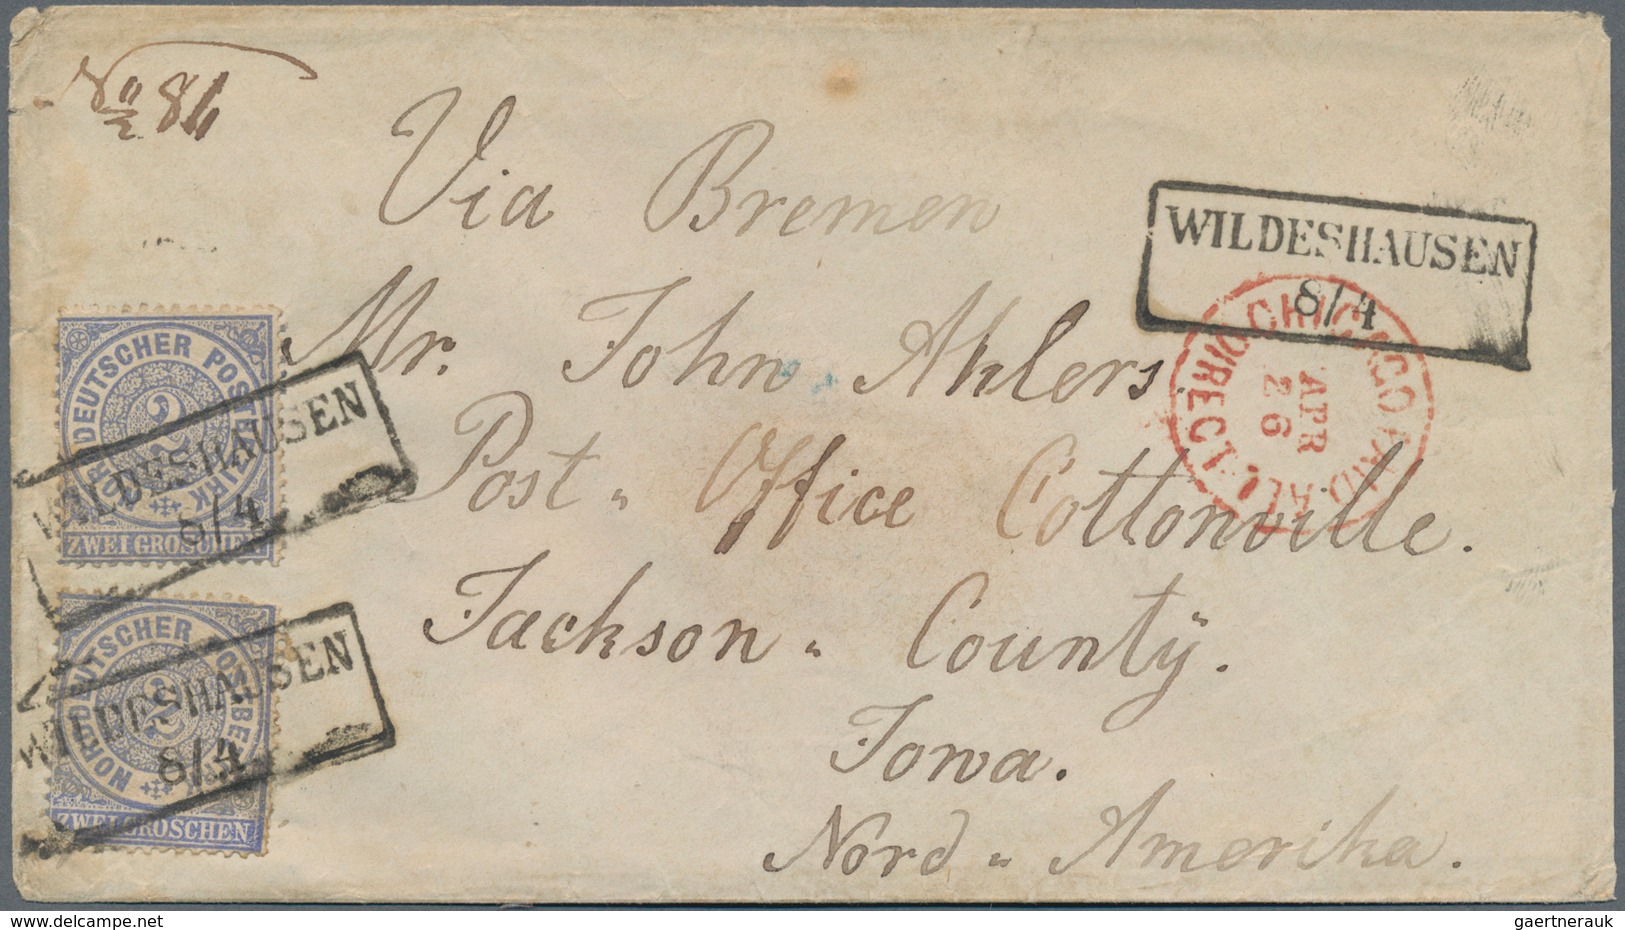 No 86
Via Bremen
WILDESHAUSEN
8/4
Mr. John Ahlers.
CHICAGO PAID ALL DIRECT
APR
26
Post-Office Cottonville.
Jackson-County.
Iowa.
Nord-Amerika.
NORDDEUTSCHER POSTBEZIRK
2
ZWEI GROSCHEN
WILDESHAUSEN
8/4
NORDDEUTSCHER POSTBEZIRK
2
ZWEI GROSCHEN
WILDESHAUSEN
8/4
www.delcampe.net
gaertnerauk